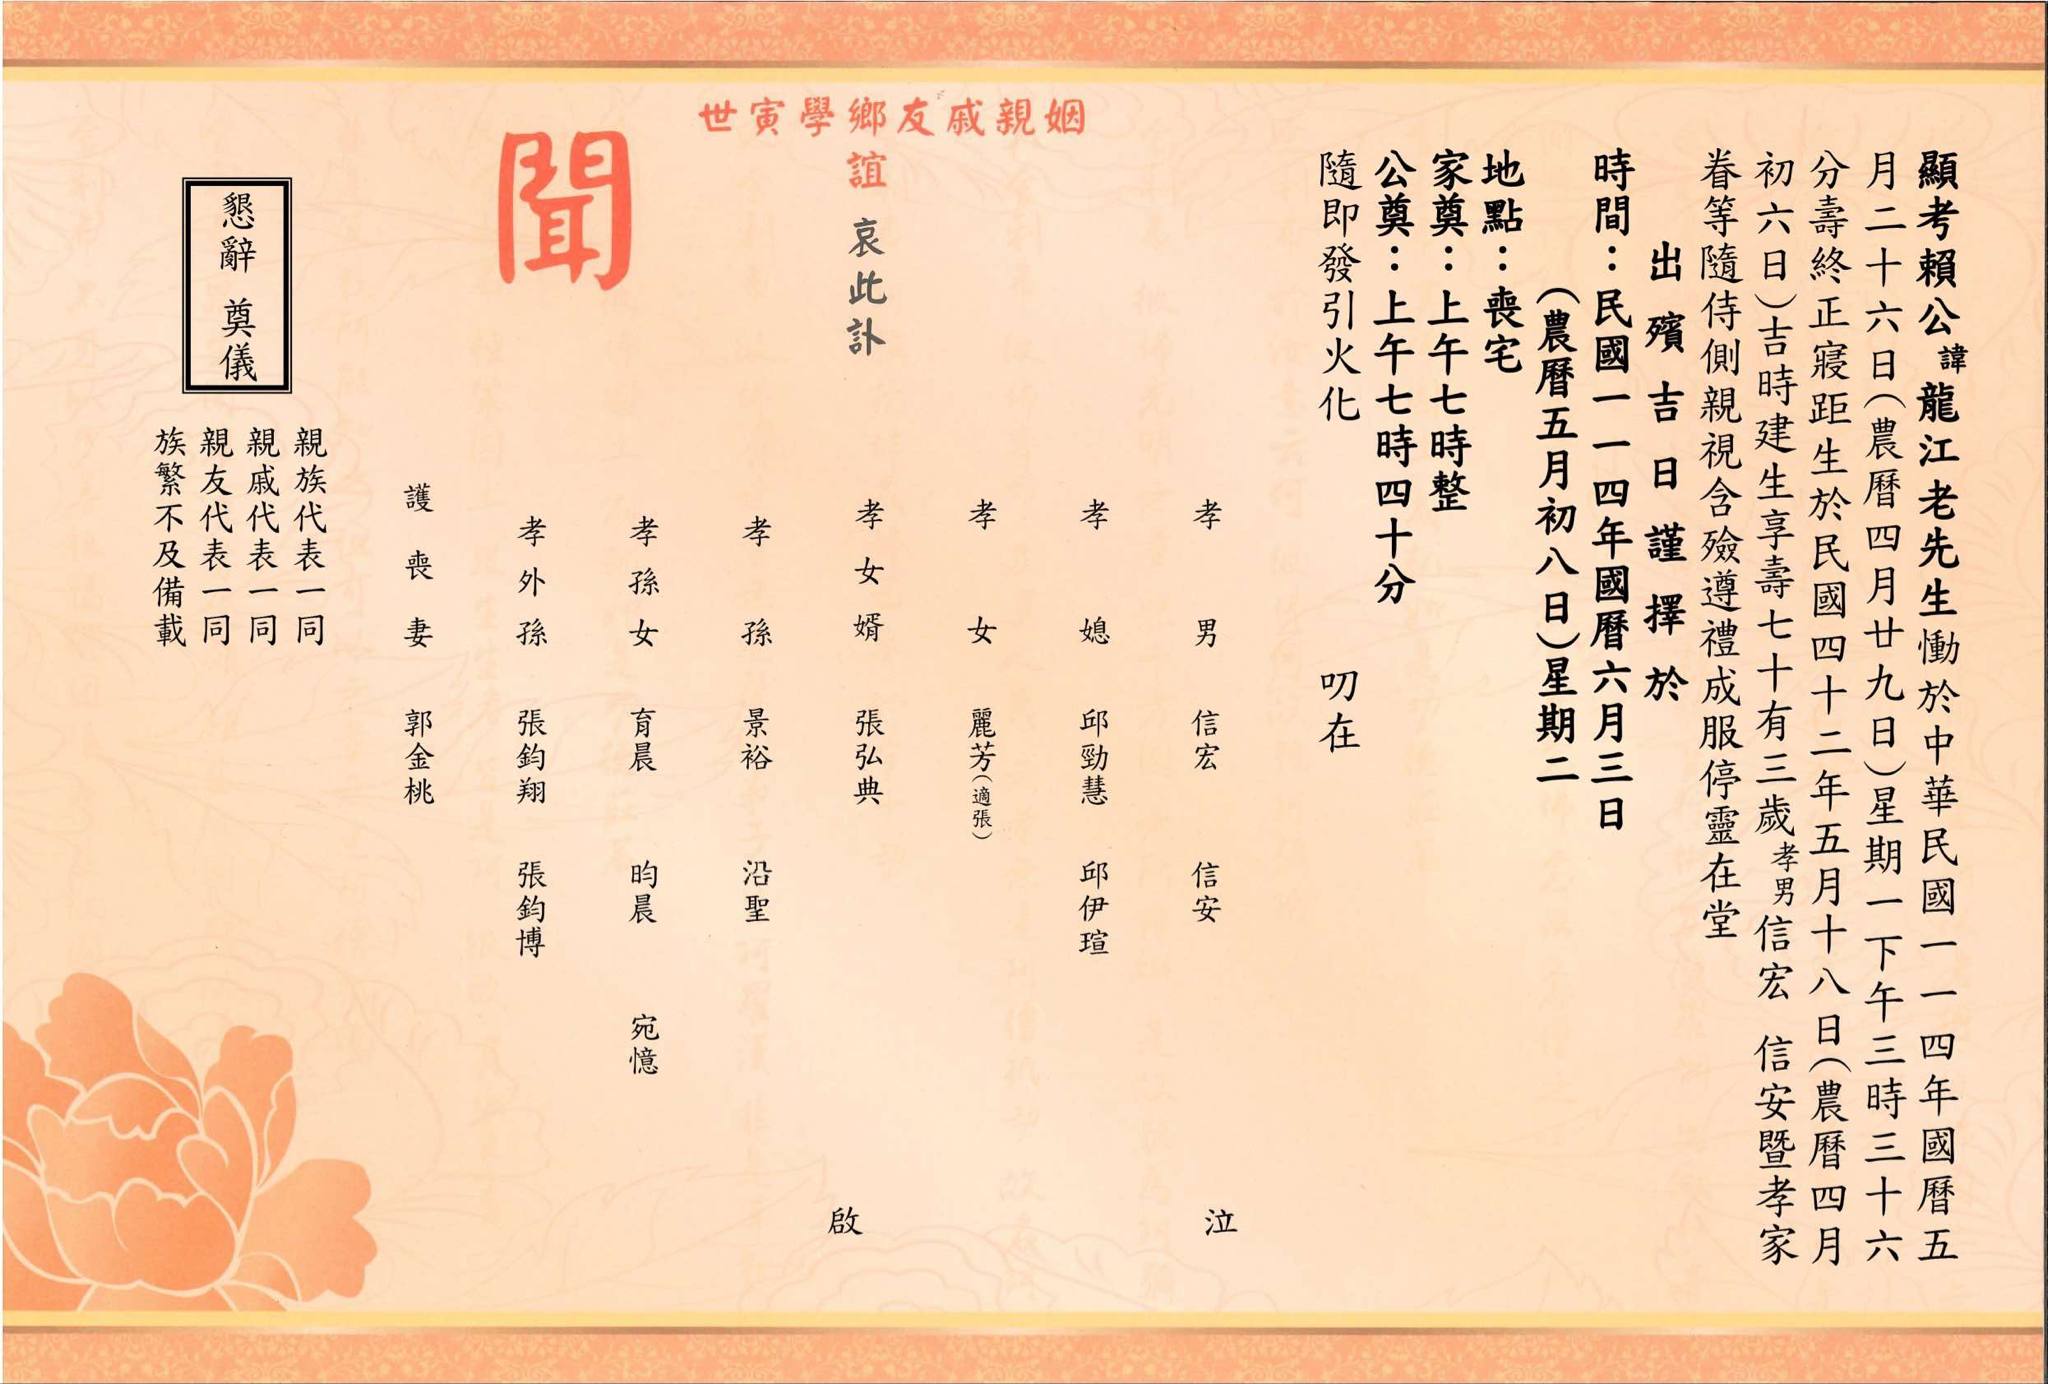 顯考賴公諱龍江老先生慟於中華民國一一四年國曆五
月二十六日(農曆四月廿九日)星期一下午三時三十六
分壽終正寢距生於民國四十二年五月十八日(農曆四月
初六日)吉時建生享壽七十有三歲孝男信宏 信安暨孝家
眷等隨侍側親視含殮遵禮成服停靈在堂
出殯吉日謹擇於
時間:民國一一四年國曆六月三日
(農曆五月初八日)星期二
地點:喪宅
家奠:上午七時整
公奠:上午七時四十分
隨即發引火化 叨在
姻親戚友鄉學寅世
誼 哀此訃
聞
孝男 信宏 信安
孝媳 邱勁慧 邱伊瑄
孝女 麗芳(適張)
孝女婿 張弘典
孝孫 景裕 沿聖
孝孫女 育晨 昀晨 宛憶
孝外孫 張鈞翔 張鈞博
護喪妻 郭金桃
泣
啟
親族代表一同
親戚代表一同
親友代表一同
族繁不及備載
懇辭 奠儀